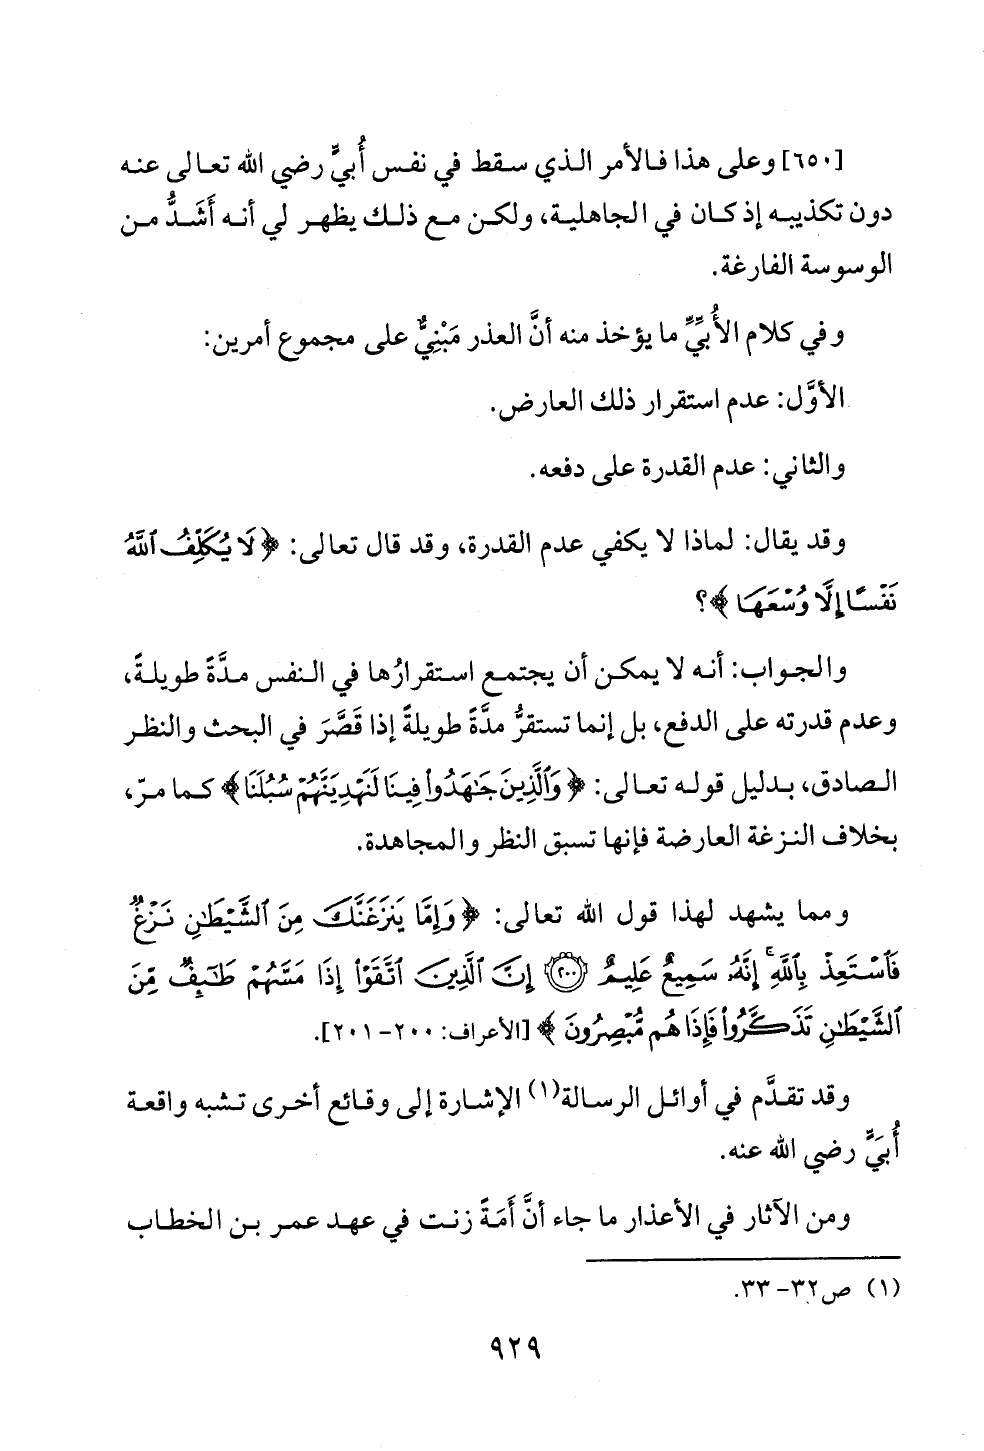 [٦٥٠] وعلى هذا فالأمر الذي سقط في نفس أُبيٍّ رضي الله تعالى عنه
دون تكذيبه إذ كان في الجاهلية، ولكن مع ذلك يظهر لي أنه أَشَدُّ من
الوسوسة الفارغة.
وفي كلام الأُبِّيِّ ما يؤخذ منه أنَّ العذر مَبْنِيٌّ على مجموع أمرين:
الأوَّل: عدم استقرار ذلك العارض.
والثاني: عدم القدرة على دفعه.
وقد يقال: لماذا لا يكفي عدم القدرة، وقد قال تعالى: ﴿لَا يُكَلِّفُ ٱللَّهُ
نَفْسًا إِلَّا وُسْعَهَا﴾؟
والجواب: أنه لا يمكن أن يجتمع استقرارُها في النفس مدَّةً طويلةً،
وعدم قدرته على الدفع، بل إنما تستقرُّ مدَّةً طويلةً إذا قَصَّرَ في البحث والنظر
الصادق، بدليل قوله تعالى: ﴿وَٱلَّذِينَ جَٰهَدُوا۟ فِينَا لَنَهْدِيَنَّهُمْ سُبُلَنَا﴾ كما مرّ،
بخلاف النزغة العارضة فإنها تسبق النظر والمجاهدة.
ومما يشهد لهذا قول الله تعالى: ﴿وَإِمَّا يَنزَغَنَّكَ مِنَ ٱلشَّيْطَٰنِ نَزْغٌ
فَٱسْتَعِذْ بِٱللَّهِ ۚ إِنَّهُۥ سَمِيعٌ عَلِيمٌ ﴿٢٠٠﴾ إِنَّ ٱلَّذِينَ ٱتَّقَوْا۟ إِذَا مَسَّهُمْ طَٰٓئِفٌ مِّنَ
ٱلشَّيْطَٰنِ تَذَكَّرُوا۟ فَإِذَا هُم مُّبْصِرُونَ﴾ [الأعراف: ٢٠٠-٢٠١].
وقد تقدَّم في أوائل الرسالة(١) الإشارة إلى وقائع أخرى تشبه واقعة
أُبَيٍّ رضي الله عنه.
ومن الآثار في الأعذار ما جاء أنَّ أَمَةً زنت في عهد عمر بن الخطاب
(١) ص٣٢-٣٣.
٩٢٩